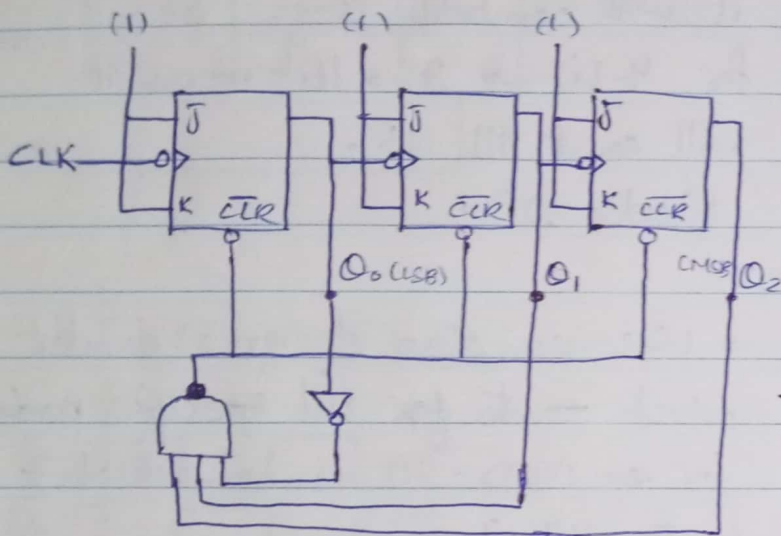 (1) (1) (1)
J J J
CLK
K CLR K CLR K CLR
Q₀ (LSB) Q₁ (MSB) Q₂